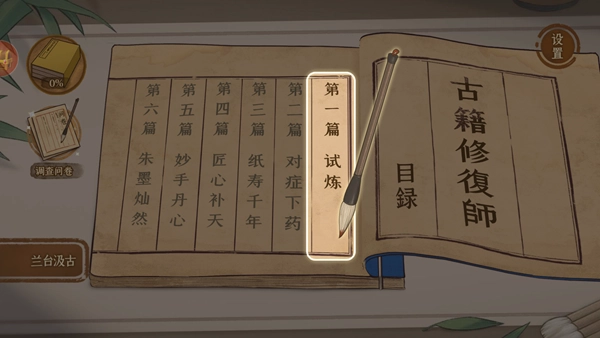 古籍修復師
目録
第一篇 试炼
第二篇 对症下药
第三篇 纸寿千年
第四篇 匠心补天
第五篇 妙手丹心
第六篇 朱墨灿然
设置
0%
调查问卷
兰台汲古